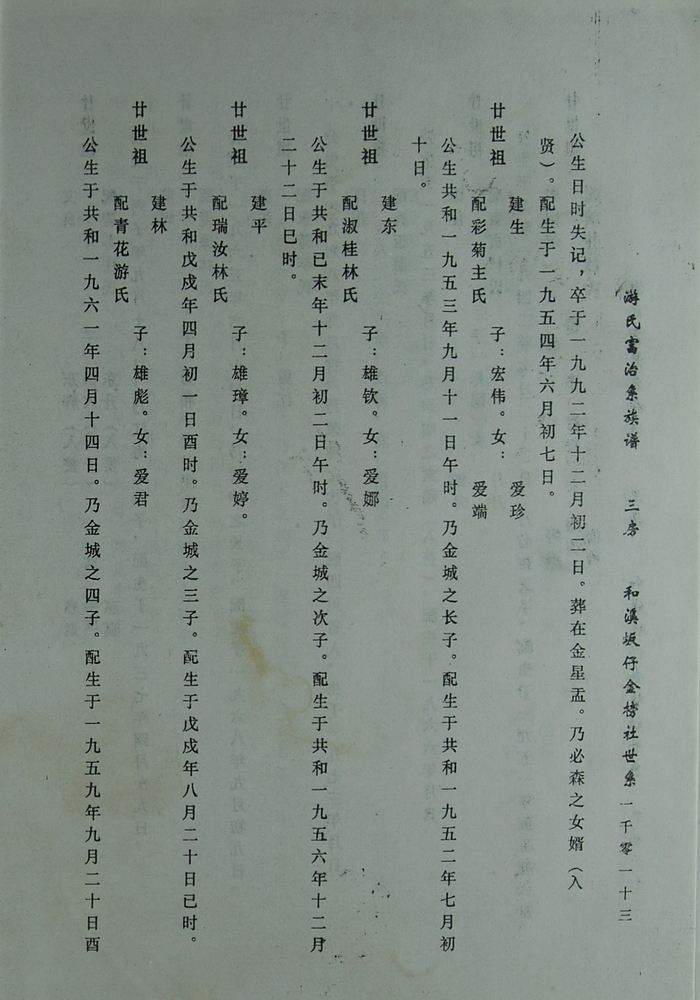 游氏富治系族谱 三房 和溪坂仔金榜社世系 一千零一十三
公生日时失记，卒于一九九二年十二月初二日。葬在金星盂。乃必森之女婿（入
贤）。配生于一九五四年六月初七日。
廿世祖 建生 配彩菊主氏 子：宏伟。女：爱珍 爱端
公生共和一九五三年九月十一日午时。乃金城之长子。配生于共和一九五二年七月初
十日。
廿世祖 建东 配淑桂林氏 子：雄钦。女：爱娜
公生于共和已末年十二月初二日午时。乃金城之次子。配生于共和一九五六年十二月
二十二日巳时。
廿世祖 建平 配瑞汝林氏 子：雄璋。女：爱婷。
公生于共和戊戌年四月初一日酉时。乃金城之三子。配生于戊戌年八月二十日已时。
廿世祖 建林 配青花游氏 子：雄彪。女：爱君
公生于共和一九六一年四月十四日。乃金城之四子。配生于一九五九年九月二十日酉